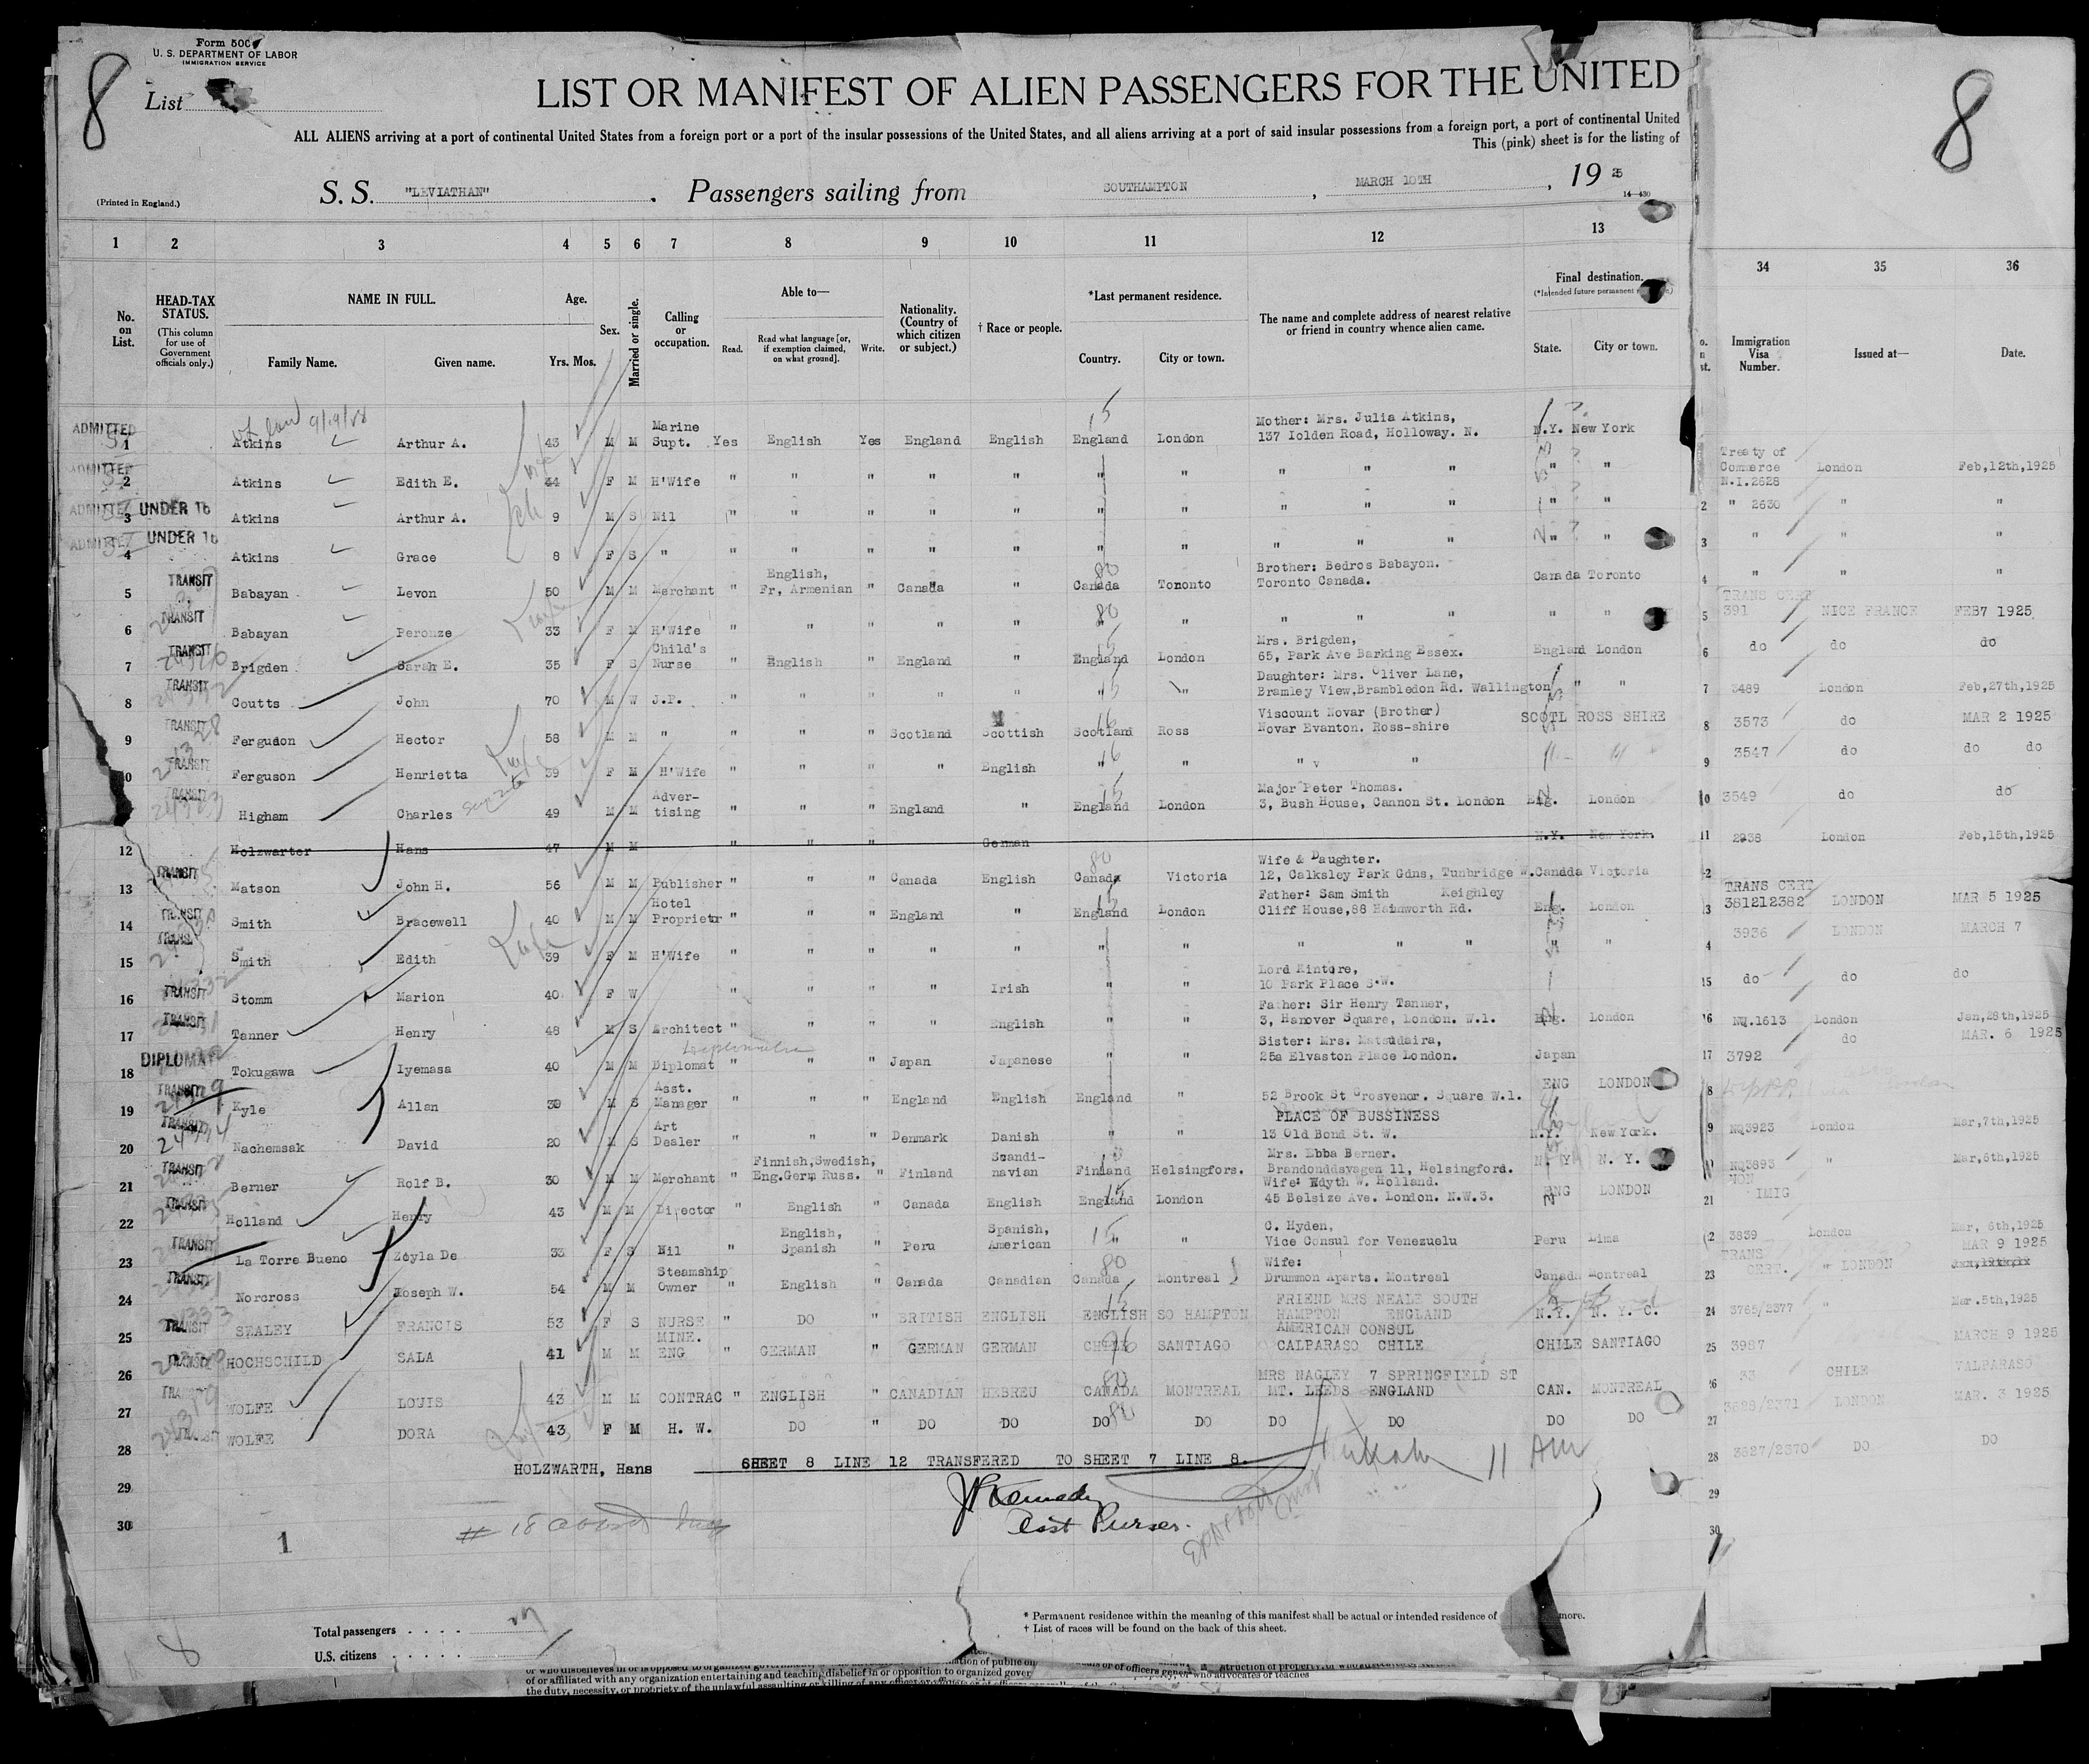 Form 500
U. S. DEPARTMENT OF LABOR
IMMIGRATION SERVICE
8
List
8
LIST OR MANIFEST OF ALIEN PASSENGERS FOR THE UNITED
ALL ALIENS arriving at a port of continental United States from a foreign port or a port of the insular possessions of the United States, and all aliens arriving at a port of said insular possessions from a foreign port, a port of continental United
This (pink) sheet is for the listing of
(Printed in England.)
S. S. "LEVIATHAN" . Passengers sailing from SOUTHAMPTON , MARCH 10TH , 19 25
14-430
1 2 3 4 5 6 7 8 9 10 11 12 13 34 35 36
No. on List.
HEAD-TAX STATUS.
(This column for use of Government officials only.)
NAME IN FULL.
Family Name. Given name.
Age.
Yrs. Mos.
Sex.
Married or single.
Calling or occupation.
Able to—
Read. Read what language [or, if exemption claimed, on what ground]. Write.
Nationality. (Country of which citizen or subject.)
† Race or people.
*Last permanent residence.
Country. City or town.
The name and complete address of nearest relative or friend in country whence alien came.
Final destination.
(*Intended future permanent
State. City or town.
Immigration Visa Number.
Issued at—
Date.
ADMITTED 1 Atkins Arthur A. 43 M M Marine Supt. Yes English Yes England English England London Mother: Mrs. Julia Atkins, 137 Iolden Road, Holloway. N. N.Y. New York
Treaty of Commerce N.I.2628 London Feb,12th,1925
ADMITTED 2 Atkins Edith E. 44 F M H'Wife " " " " " " " " " " " "
2 " 2630 " "
ADMITTED 3 UNDER 16 Atkins Arthur A. 9 M S Nil " " " " " " " " " " " "
3 " " "
ADMITTED 4 UNDER 16 Atkins Grace 8 F S " " " " " " " " " " " " "
4 " " "
5 TRANSIT Babayan Levon 50 M M Merchant " English, Fr, Armenian " Canada " Canada Toronto Brother: Bedros Babayon. Toronto Canada. Canada Toronto
5 TRANS CERT 391 NICE FRANCE FEB7 1925
6 TRANSIT Babayan Peronze 33 F M H'Wife " " " " " " " " " " " "
6 do do do
7 TRANSIT Brigden Sarah E. 35 F S Child's Nurse " English " England " England London Mrs. Brigden, 65, Park Ave Barking Essex. England London
7 3489 London Feb,27th,1925
8 TRANSIT Coutts John 70 M W J.P. " " " " " " " Daughter: Mrs. Oliver Lane, Bramley View,Brambledon Rd. Wallington " "
8 3573 do MAR 2 1925
9 TRANSIT Ferguson Hector 58 M M " " " " Scotland Scottish Scotland Ross Viscount Novar (Brother) Novar Evanton. Ross-shire SCOTL ROSS SHIRE
9 3547 do do do
10 TRANSIT Ferguson Henrietta 39 F M H'Wife " " " " English " " " "
10 3549 do do
Higham Charles 49 M M Adver-tising " " " England " England London Major Peter Thomas. 3, Bush House, Cannon St. London Eng. London
11 2938 London Feb,15th,1925
12 Holzwarter Hans 47 M M " " " German N.Y. New York.
13 TRANSIT Matson John H. 56 M M Publisher " " " Canada English Canada Victoria Wife & Daughter. 12, Calksley Park Gdns, Tunbridge W. Canada Victoria
3 TRANS CERT 381212382 LONDON MAR 5 1925
14 TRANSIT Smith Bracewell 40 M M Hotel Proprietr " " " England " England London Father: Sam Smith Keighley Cliff House,88 Hainworth Rd. Eng. London
4 3936 LONDON MARCH 7
15 Smith Edith 39 F M H'Wife " " " " " " " " " " " "
15 do do do
16 TRANSIT Stomm Marion 40 F W " " " " Irish " " Lord Kintore, 10 Park Place S.W.
16 NQ.1613 London Jan,28th,1925
17 TRANSIT Tanner Henry 48 M S Architect " " " " English " " Father: Sir Henry Tanner, 3, Hanover Square, London. W.1. Eng. London
17 3792 do MAR. 6 1925
18 DIPLOMAT Tokugawa Iyemasa 40 M M Diplomat " " " Japan Japanese " " Sister: Mrs. Matsudaira, 25a Elvaston Place London. Japan
19 TRANSIT Kyle Allan 39 M S Asst. Manager " " " England English England " 52 Brook St Grosvenor. Square W.1. ENG LONDON
9 NQ3923 London Mar,7th,1925
20 TRANSIT Nachemsak David 20 M S Art Dealer " " " Denmark Danish " " PLACE OF BUSSINESS 13 Old Bond St. W. N.Y. New York.
NQ3893 " Mar,6th,1925
21 TRANSIT Berner Rolf B. 30 M M Merchant " Finnish,Swedish, Eng.Germ Russ. " Finland Scandi-navian Finland Helsingfors. Mrs. Ebba Berner. Brandonddsvagen 11, Helsingford. N. Y N. Y.
21 NON IMIG
22 TRANSIT Holland Henry 43 M M Director " English " Canada English England London Wife: Edyth W. Holland. 45 Belsize Ave. London. N.W.3. ENG LONDON
3839 London Mar, 6th,1925
23 TRANSIT La Torre Bueno Zoyla De 33 F S Nil " English, Spanish " Peru Spanish, American " " C. Hyden, Vice Consul for Venezuelu Peru Lima
23 TRANS CERT. " LONDON MAR 9 1925
24 TRANSIT Norcross Joseph W. 54 M M Steamship Owner " English " Canada Canadian Canada Montreal Wife: Drummon Aparts. Montreal Canada Montreal
24 3765/2377 " Mar.5th,1925
25 TRANSIT SEALEY FRANCIS 53 F S NURSE " DO " BRITISH ENGLISH ENGLISH SO HAMPTON FRIEND MRS NEALE SOUTH HAMPTON ENGLAND N.Y. N. Y. C.
25 3987 MARCH 9 1925
26 TRANSIT HOCHSCHILD SALA 41 M M MINE. ENG " GERMAN " GERMAN GERMAN CHILE SANTIAGO AMERICAN CONSUL CALPARASO CHILE CHILE SANTIAGO
33 CHILE VALPARASO
27 WOLFE LOUIS 43 M M CONTRAC " ENGLISH " CANADIAN HEBREU CANADA MONTREAL MRS NAGLEY 7 SPRINGFIELD ST MT. LEEDS ENGLAND CAN. MONTREAL
27 3628/2371 LONDON MAR. 3 1925
28 WOLFE DORA 43 F M H. W. DO " DO DO DO DO DO DO DO DO
28 3627/2370 DO DO
HOLZWARTH, Hans SHEET 8 LINE 12 TRANSFERED TO SHEET 7 LINE 8.
11 AM
29 29
30 30
Asst Purser.
1
Total passengers . . . .
U.S. citizens . . . . .
* Permanent residence within the meaning of this manifest shall be actual or intended residence of more.
† List of races will be found on the back of this sheet.
of or affiliated with any organization entertaining and teaching disbelief in or opposition to organized gover